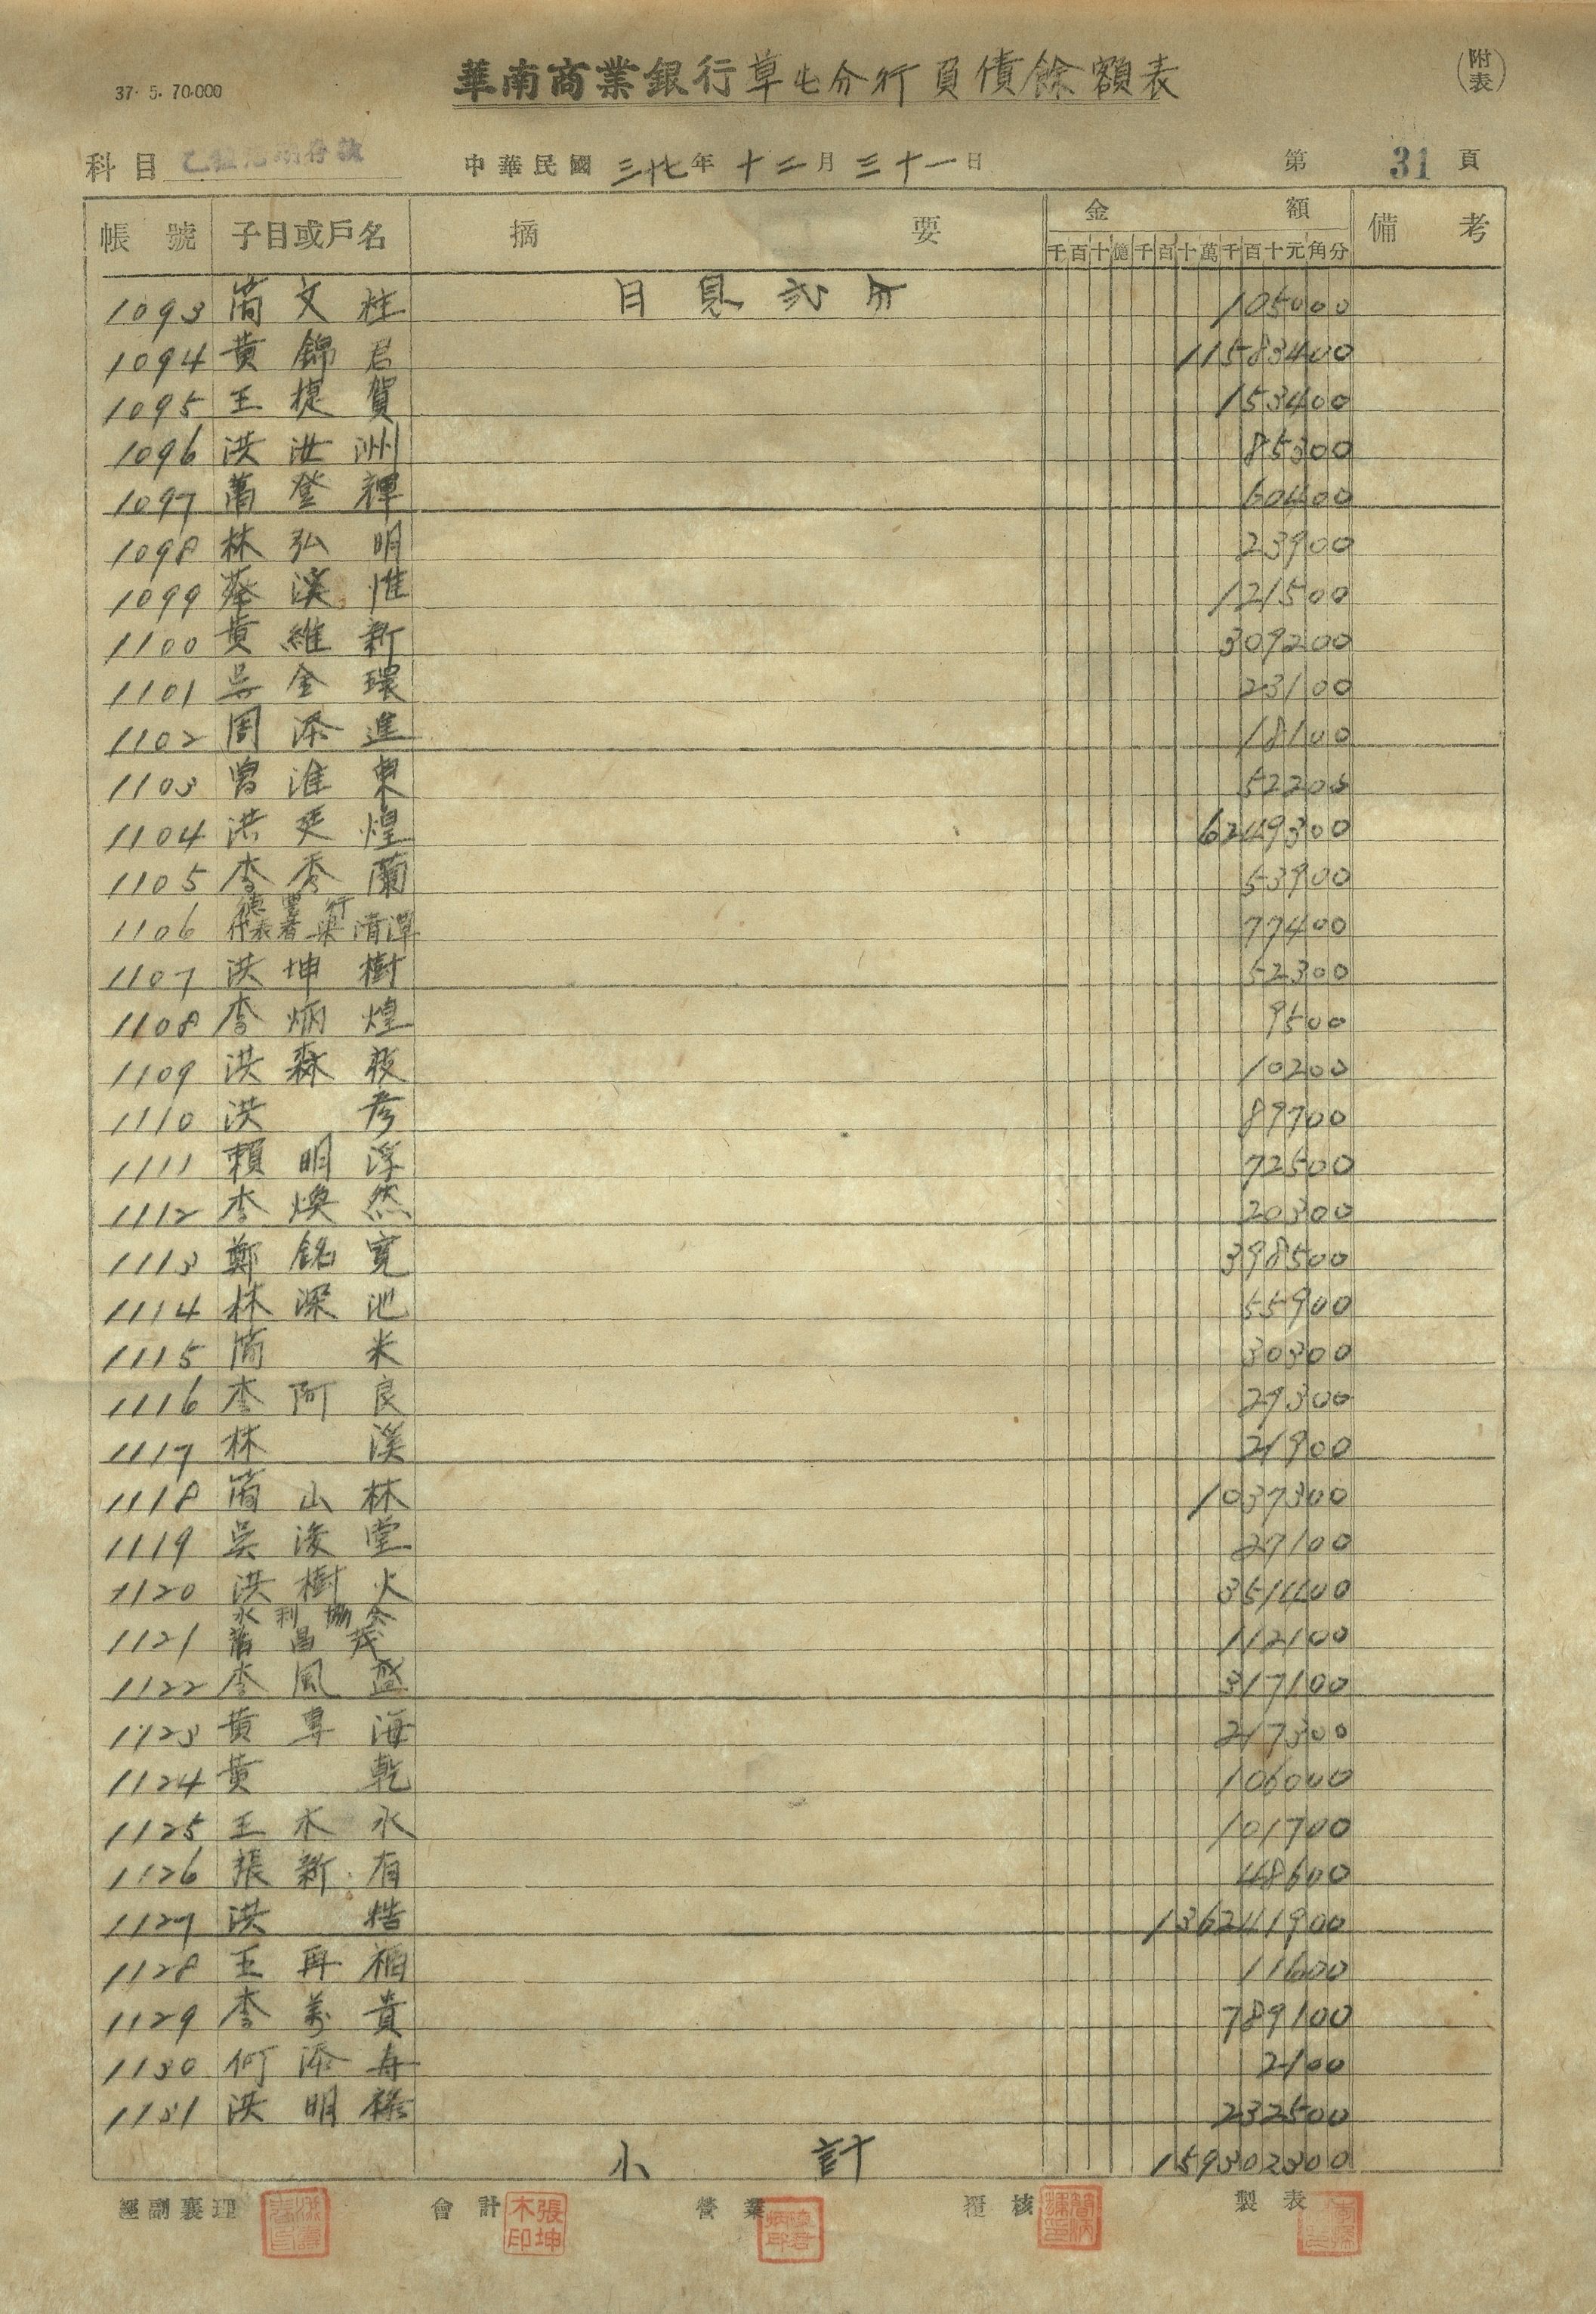 37. 5. 70.000
華南商業銀行草屯分行負債餘額表
(附表)
科目 乙種活期存款 中華民國三十七年十二月三十一日 第31頁
帳號 子目或戶名 摘要 金額 備考
千百十億千百十萬千百十元角分
1093 簡文柱 日息弐分 105000
1094 黃錦君 11583400
1095 王捷賀 153400
1096 洪汝州 85300
1097 蕭登輝 60400
1098 林弘明 23900
1099 蔡溪惟 121500
1100 黃維新 309200
1101 吳金環 23100
1102 周添進 18100
1103 曾淮東 52200
1104 洪廷煌 6249300
1105 李秀蘭 53900
德豐行
1106 代表者 梁清潭 77400
1107 洪坤樹 52300
1108 李炳煌 9500
1109 洪森 10200
1110 洪彥 89700
1111 賴明淳 72500
1112 李煥然 20300
1113 鄭銘寬 398500
1114 林深池 55900
1115 簡米 30300
1116 李阿良 29300
1117 林溪 21900
1118 簡山林 1037300
1119 吳浚堂 27100
1120 洪樹火 351400
水利協會
1121 蕭昌茂 112100
1122 李風盛 317100
1123 黃專海 217300
1124 黃乾 106000
1125 王木永 101700
1126 張新有 48600
1127 洪楷 136241900
1128 王再福 11600
1129 李萬貴 789100
1130 何添舟 2100
1131 洪明祿 232500
小計 159302300
經副襄理 會計 張坤木印 營業 覆核 製表